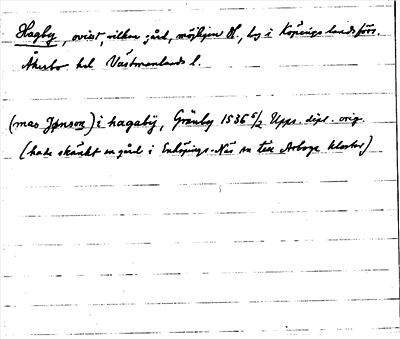 Hagby, ovisst, vilken gård, möjligen H, by i Köpings landsförs.
Åkerbo hd Västmanlands l.
(mas Jønson) i hagabÿ, Grånby 1536 5/2 Upps. dipl. orig.
(hade skänkt en gård i Enköpings-Näs sn till Arboga kloster)